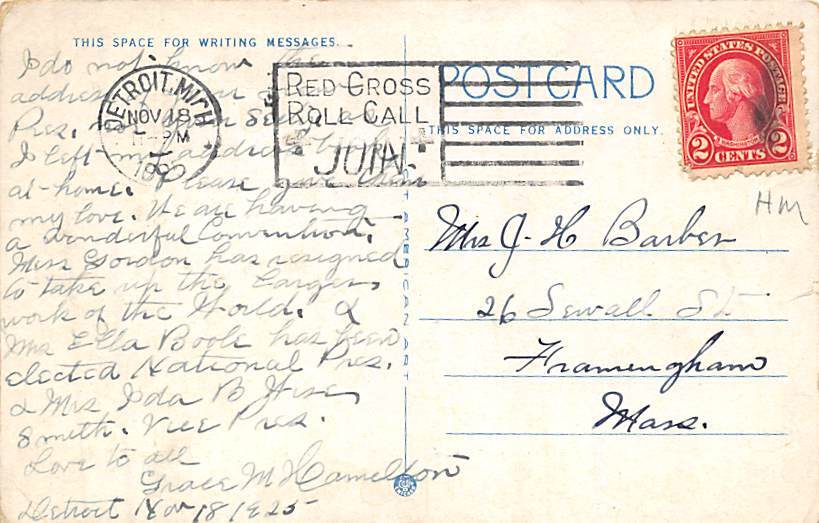 THIS SPACE FOR WRITING MESSAGES.
I do not know the
address of your
Pres,
I left my address book
at home. Please give them
my love. We are having
a wonderful Convention.
Miss Gordon has resigned
to take up the Larger
work of the World. &
Mrs Ella Boole has been
elected National Pres.
& Mrs Ida B Wise
Smith. Vice Pres.
Love to all
Grace M Hamelton
Detroit Nov 18 1925
DETROIT, MICH
NOV 18
PM
RED CROSS
ROLL CALL
JOIN
POST CARD
THIS SPACE FOR ADDRESS ONLY.
UNITED STATES POSTAGE
2 CENTS 2
HM
Mrs J. H Barber
26 Sewall St
Framingham
Mass.
AMERICAN ART